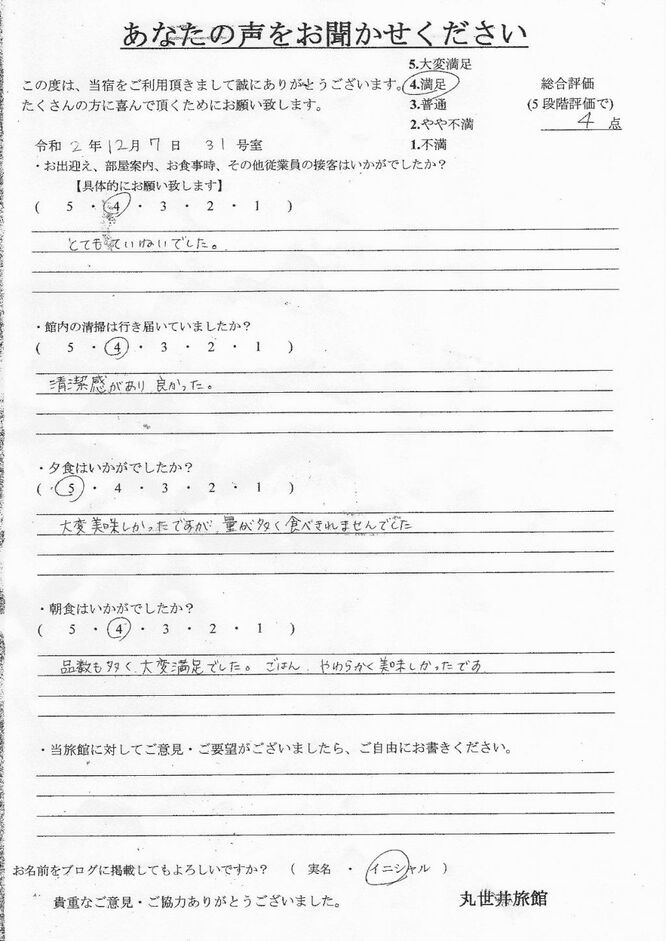 あなたの声をお聞かせください
5.大変満足
この度は、当宿をご利用頂きまして誠にありがとうございます。 4.満足 総合評価
たくさんの方に喜んで頂くためにお願い致します。 3.普通 (5段階評価で)
2.やや不満 4 点
令和 2 年 12 月 7 日 31 号室 1.不満
・お出迎え、部屋案内、お食事時、その他従業員の接客はいかがでしたか?
【具体的にお願い致します】
( 5 ・ 4 ・ 3 ・ 2 ・ 1 )
とてもていねいでした。
・館内の清掃は行き届いていましたか?
( 5 ・ 4 ・ 3 ・ 2 ・ 1 )
清潔感があり 良かった。
・夕食はいかがでしたか?
( 5 ・ 4 ・ 3 ・ 2 ・ 1 )
大変美味しかったですが、量が多く食べきれませんでした
・朝食はいかがでしたか?
( 5 ・ 4 ・ 3 ・ 2 ・ 1 )
品数も多く、大変満足でした。ごはん、やわらかく美味しかったです
・当旅館に対してご意見・ご要望がございましたら、ご自由にお書きください。
お名前をブログに掲載してもよろしいですか? ( 実名 ・ イニシャル )
貴重なご意見・ご協力ありがとうございました。 丸世井旅館